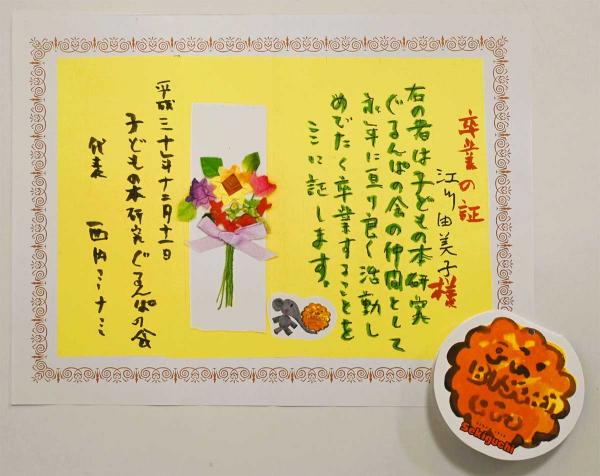 卒業の証
江川 由美子様
右の者は子どもの本研究
ぐるんぱの会の仲間として
永年に亘り良く活動し
めでたく卒業することを
ここに証します。
平成三十年十二月十一日
子どもの本研究ぐるんぱの会
代表
Sekiguchi